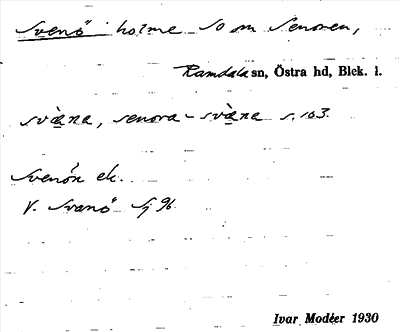 Svenö holme SO om Senoren,
Ramdala sn, Östra hd, Blek. l.
svä̀na, senora-svä̀na s. 103.
Svenön ek.
V. Svanö Sj 96
Ivar Modéer 1930